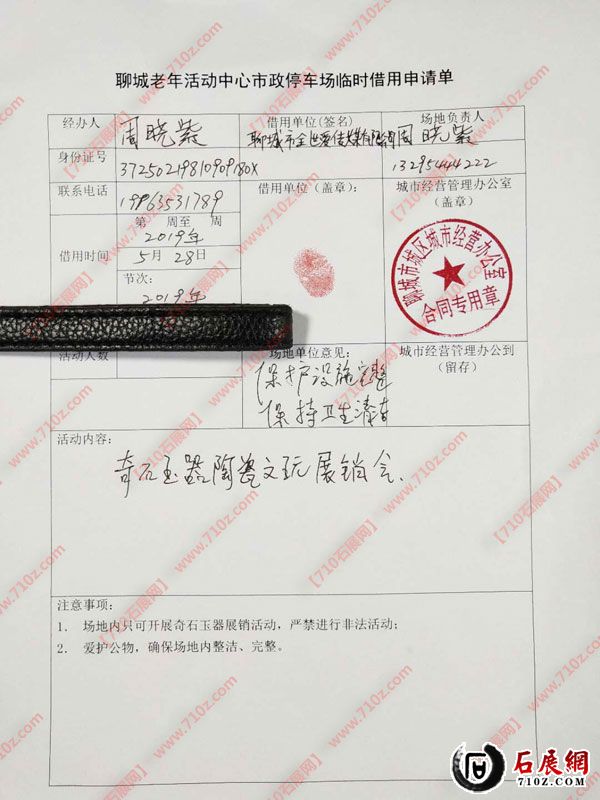 聊城老年活动中心市政停车场临时借用申请单
经办人
周晓紫
借用单位(签名)
场地负责人
周晓紫
身份证号
37250219810909180X
13295444222
联系电话
19963531789
借用单位（盖章）：
城市经营管理办公室
（盖章）
借用时间
第 周至 周
2019年
5月28日
节次：
2019年
聊城市城区城市经营办公室
合同专用章
活动人数
场地单位意见：
保护设施完整
保持卫生清洁
城市经营管理办公到
（留存）
活动内容：
奇石玉器陶瓷文玩展销会.
注意事项：
1. 场地内只可开展奇石玉器展销活动，严禁进行非法活动；
2. 爱护公物，确保场地内整洁、完整。
【710石展网】www.710z.com
石展網
710Z.COM